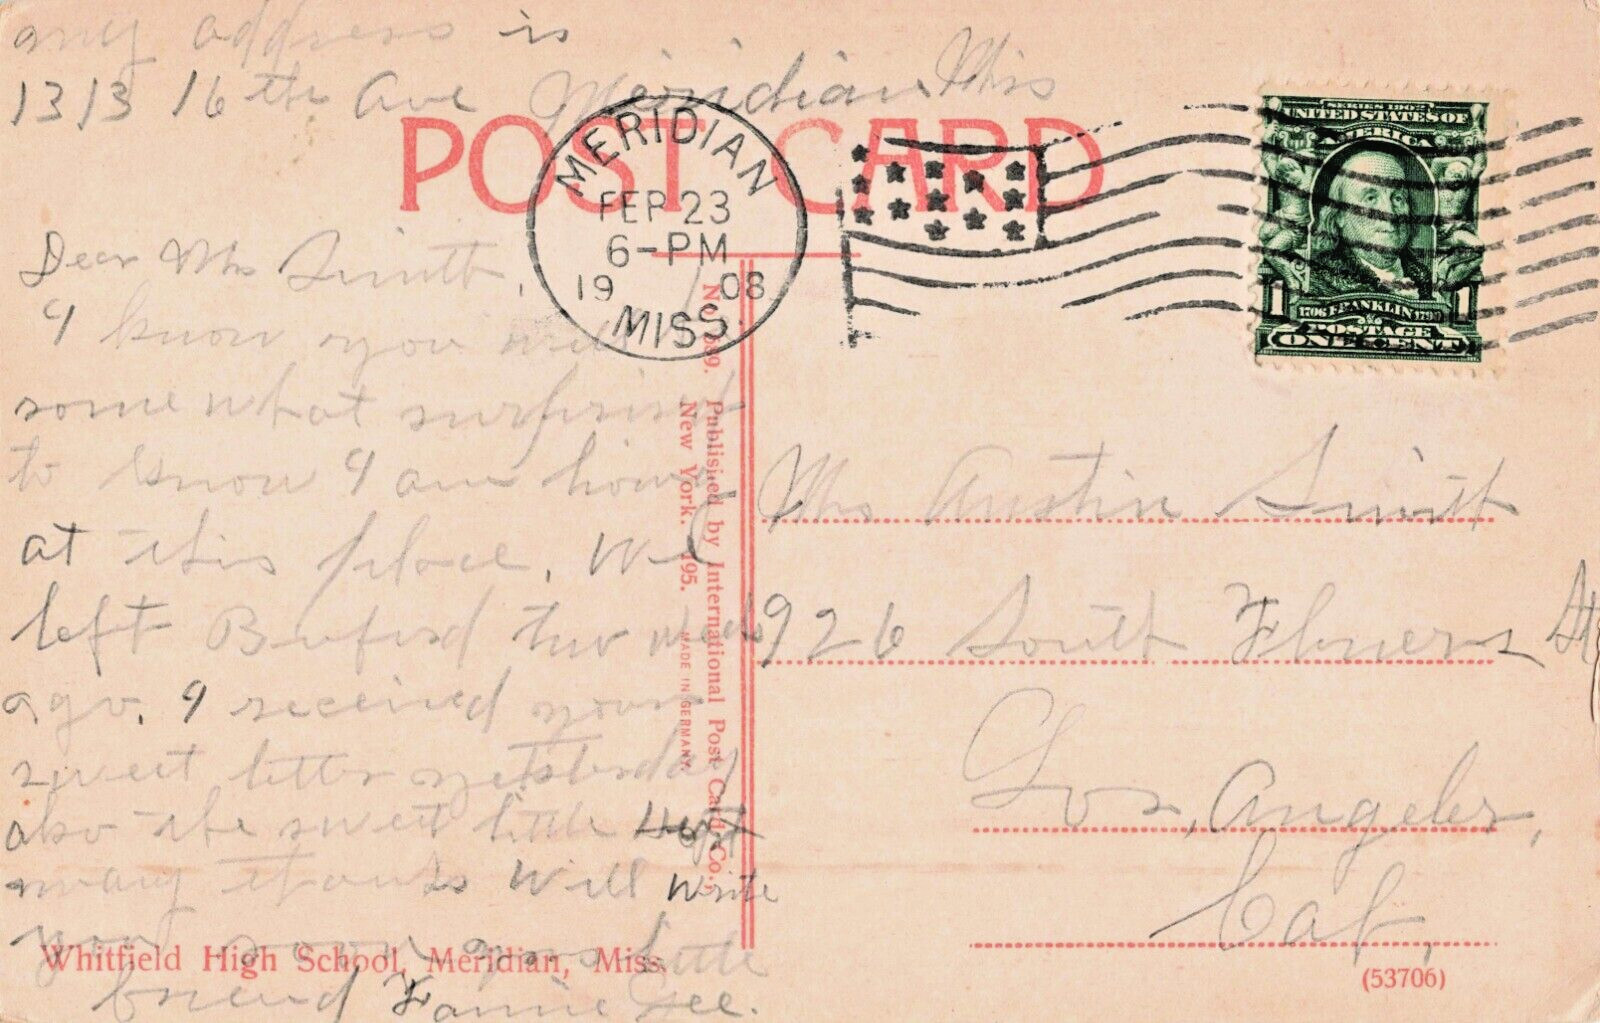 any address is
1313 16th Ave Meridian Miss
POST CARD
MERIDIAN
FEB 23
6-PM
1908
MISS.
SERIES 1902
UNITED STATES OF
AMERICA
1 1706 FRANKLIN 1790 1
POSTAGE
ONE CENT
Dear Mrs Smith,
I know you will
somewhat surprised
to know I am home
at this place, We
left Buford two weeks
ago, I received your
sweet letter yetsterday
also the sweet little
many thanks Will write
you soon your little
friend Fannie Lee.
Published by International Post Card Co.,
New York. 195. MADE IN GERMANY.
Mrs Austin Smith
926 South St
Los, Angeles,
Cal,
Whitfield High School, Meridian, Miss.
(53706)